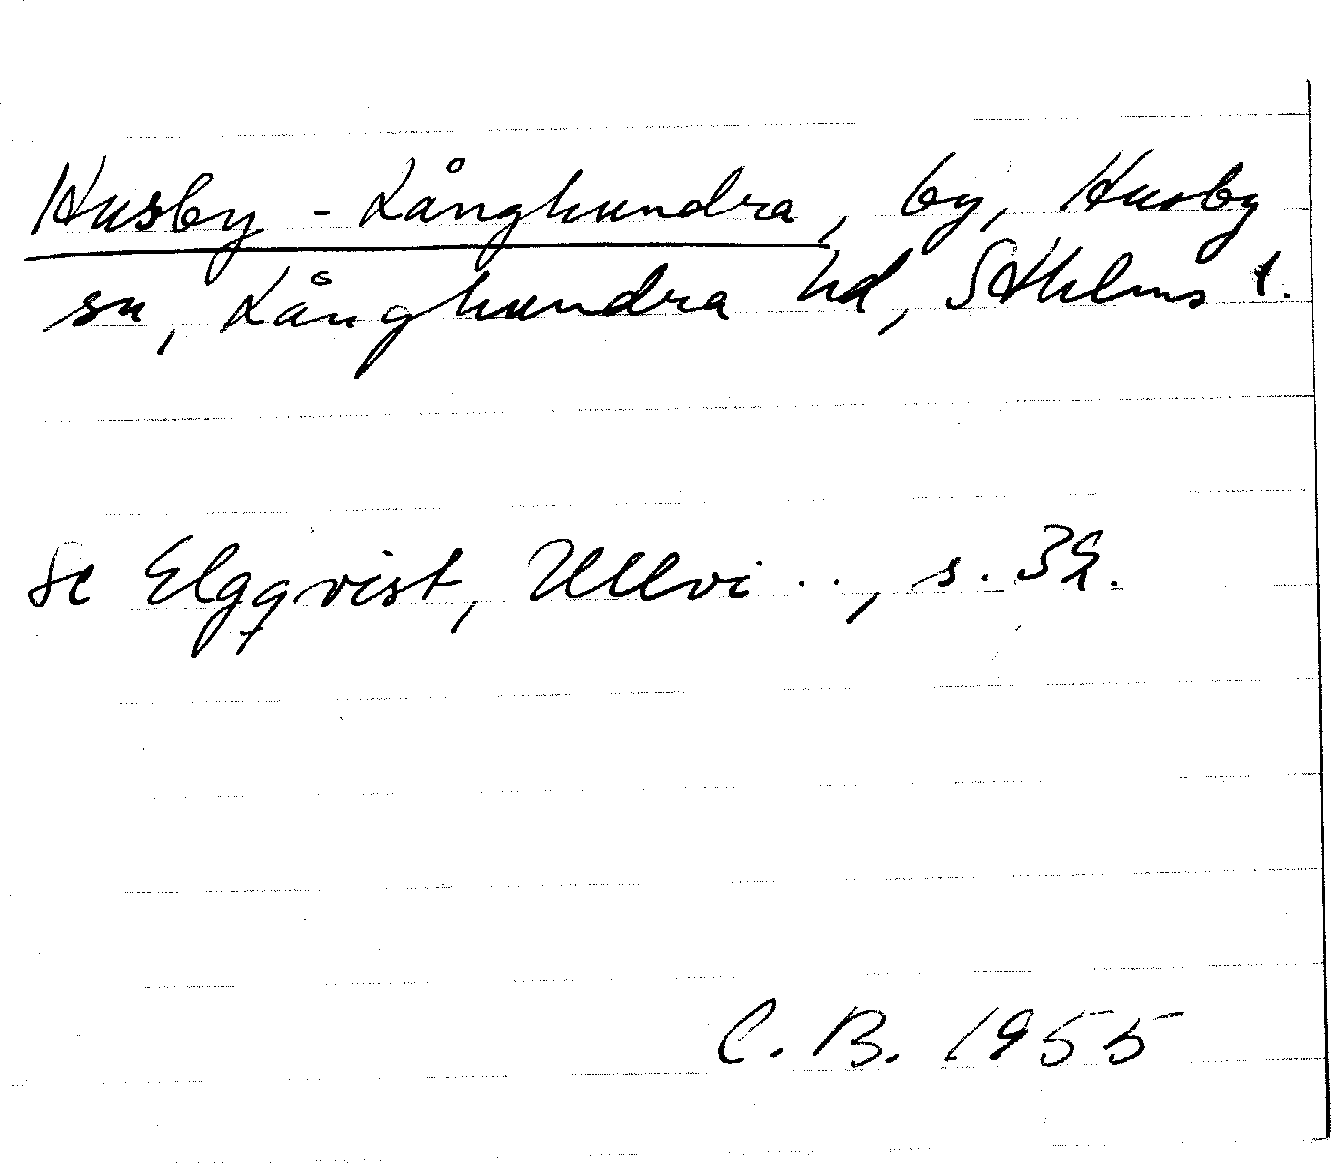 Husby - Långhundra, by, Husby
sn, Långhundra hd, Sthlms l.
Se Elgqvist, Ullvi . . , s. 39.
C. B. 1955